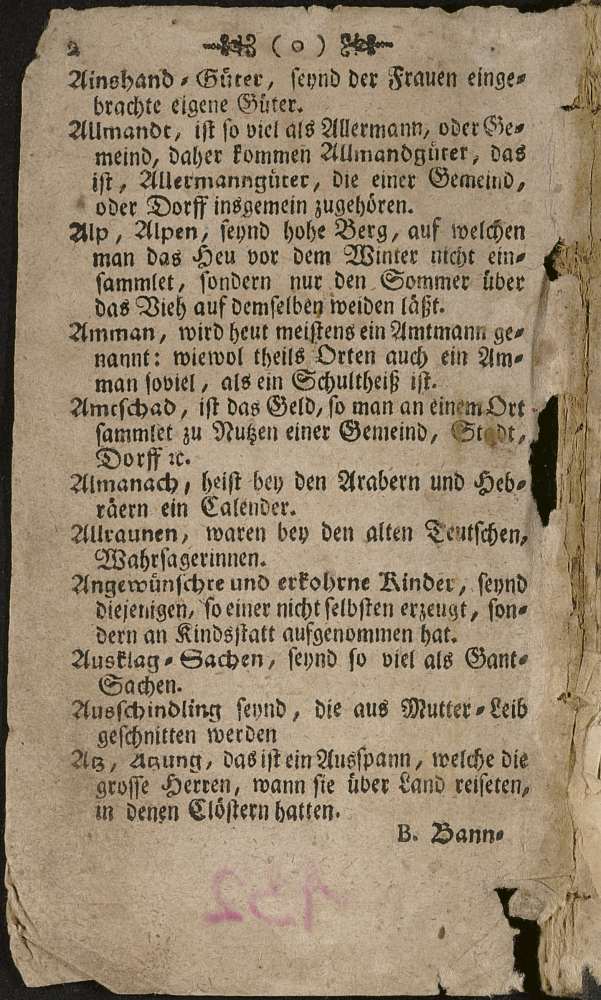 2 ( o )
Ainshand-Güter, seynd der Frauen einge-
brachte eigene Güter.
Allmandt, ist so viel als Allermann, oder Ge-
meind, daher kommen Allmandgüter, das
ist, Allermanngüter, die einer Gemeind,
oder Dorff insgemein zugehören.
Alp, Alpen, seynd hohe Berg, auf welchen
man das Heu vor dem Winter nicht ein-
sammlet, sondern nur den Sommer über
das Vieh auf demselben weiden läßt.
Amman, wird heut meistens ein Amtmann ge-
nannt: wiewol theils Orten auch ein Am-
man soviel, als ein Schultheiß ist.
Amtschad, ist das Geld, so man an einem Ort
sammlet zu Nutzen einer Gemeind, Stadt,
Dorff ꝛc.
Almanach, heist bey den Arabern und Heb-
räern ein Calender.
Allraunen, waren bey den alten Teutschen,
Wahrsagerinnen.
Angewünschte und erkohrne Kinder, seynd
diejenigen, so einer nicht selbsten erzeugt, son-
dern an Kindsstatt aufgenommen hat.
Ausklag-Sachen, seynd so viel als Gant-
Sachen.
Ausschindling seynd, die aus Mutter-Leib
geschnitten werden
Atz, Atzung, das ist ein Ausspann, welche die
grosse Herren, wann sie über Land reiseten,
in denen Clöstern hatten.
B. Bann-
132